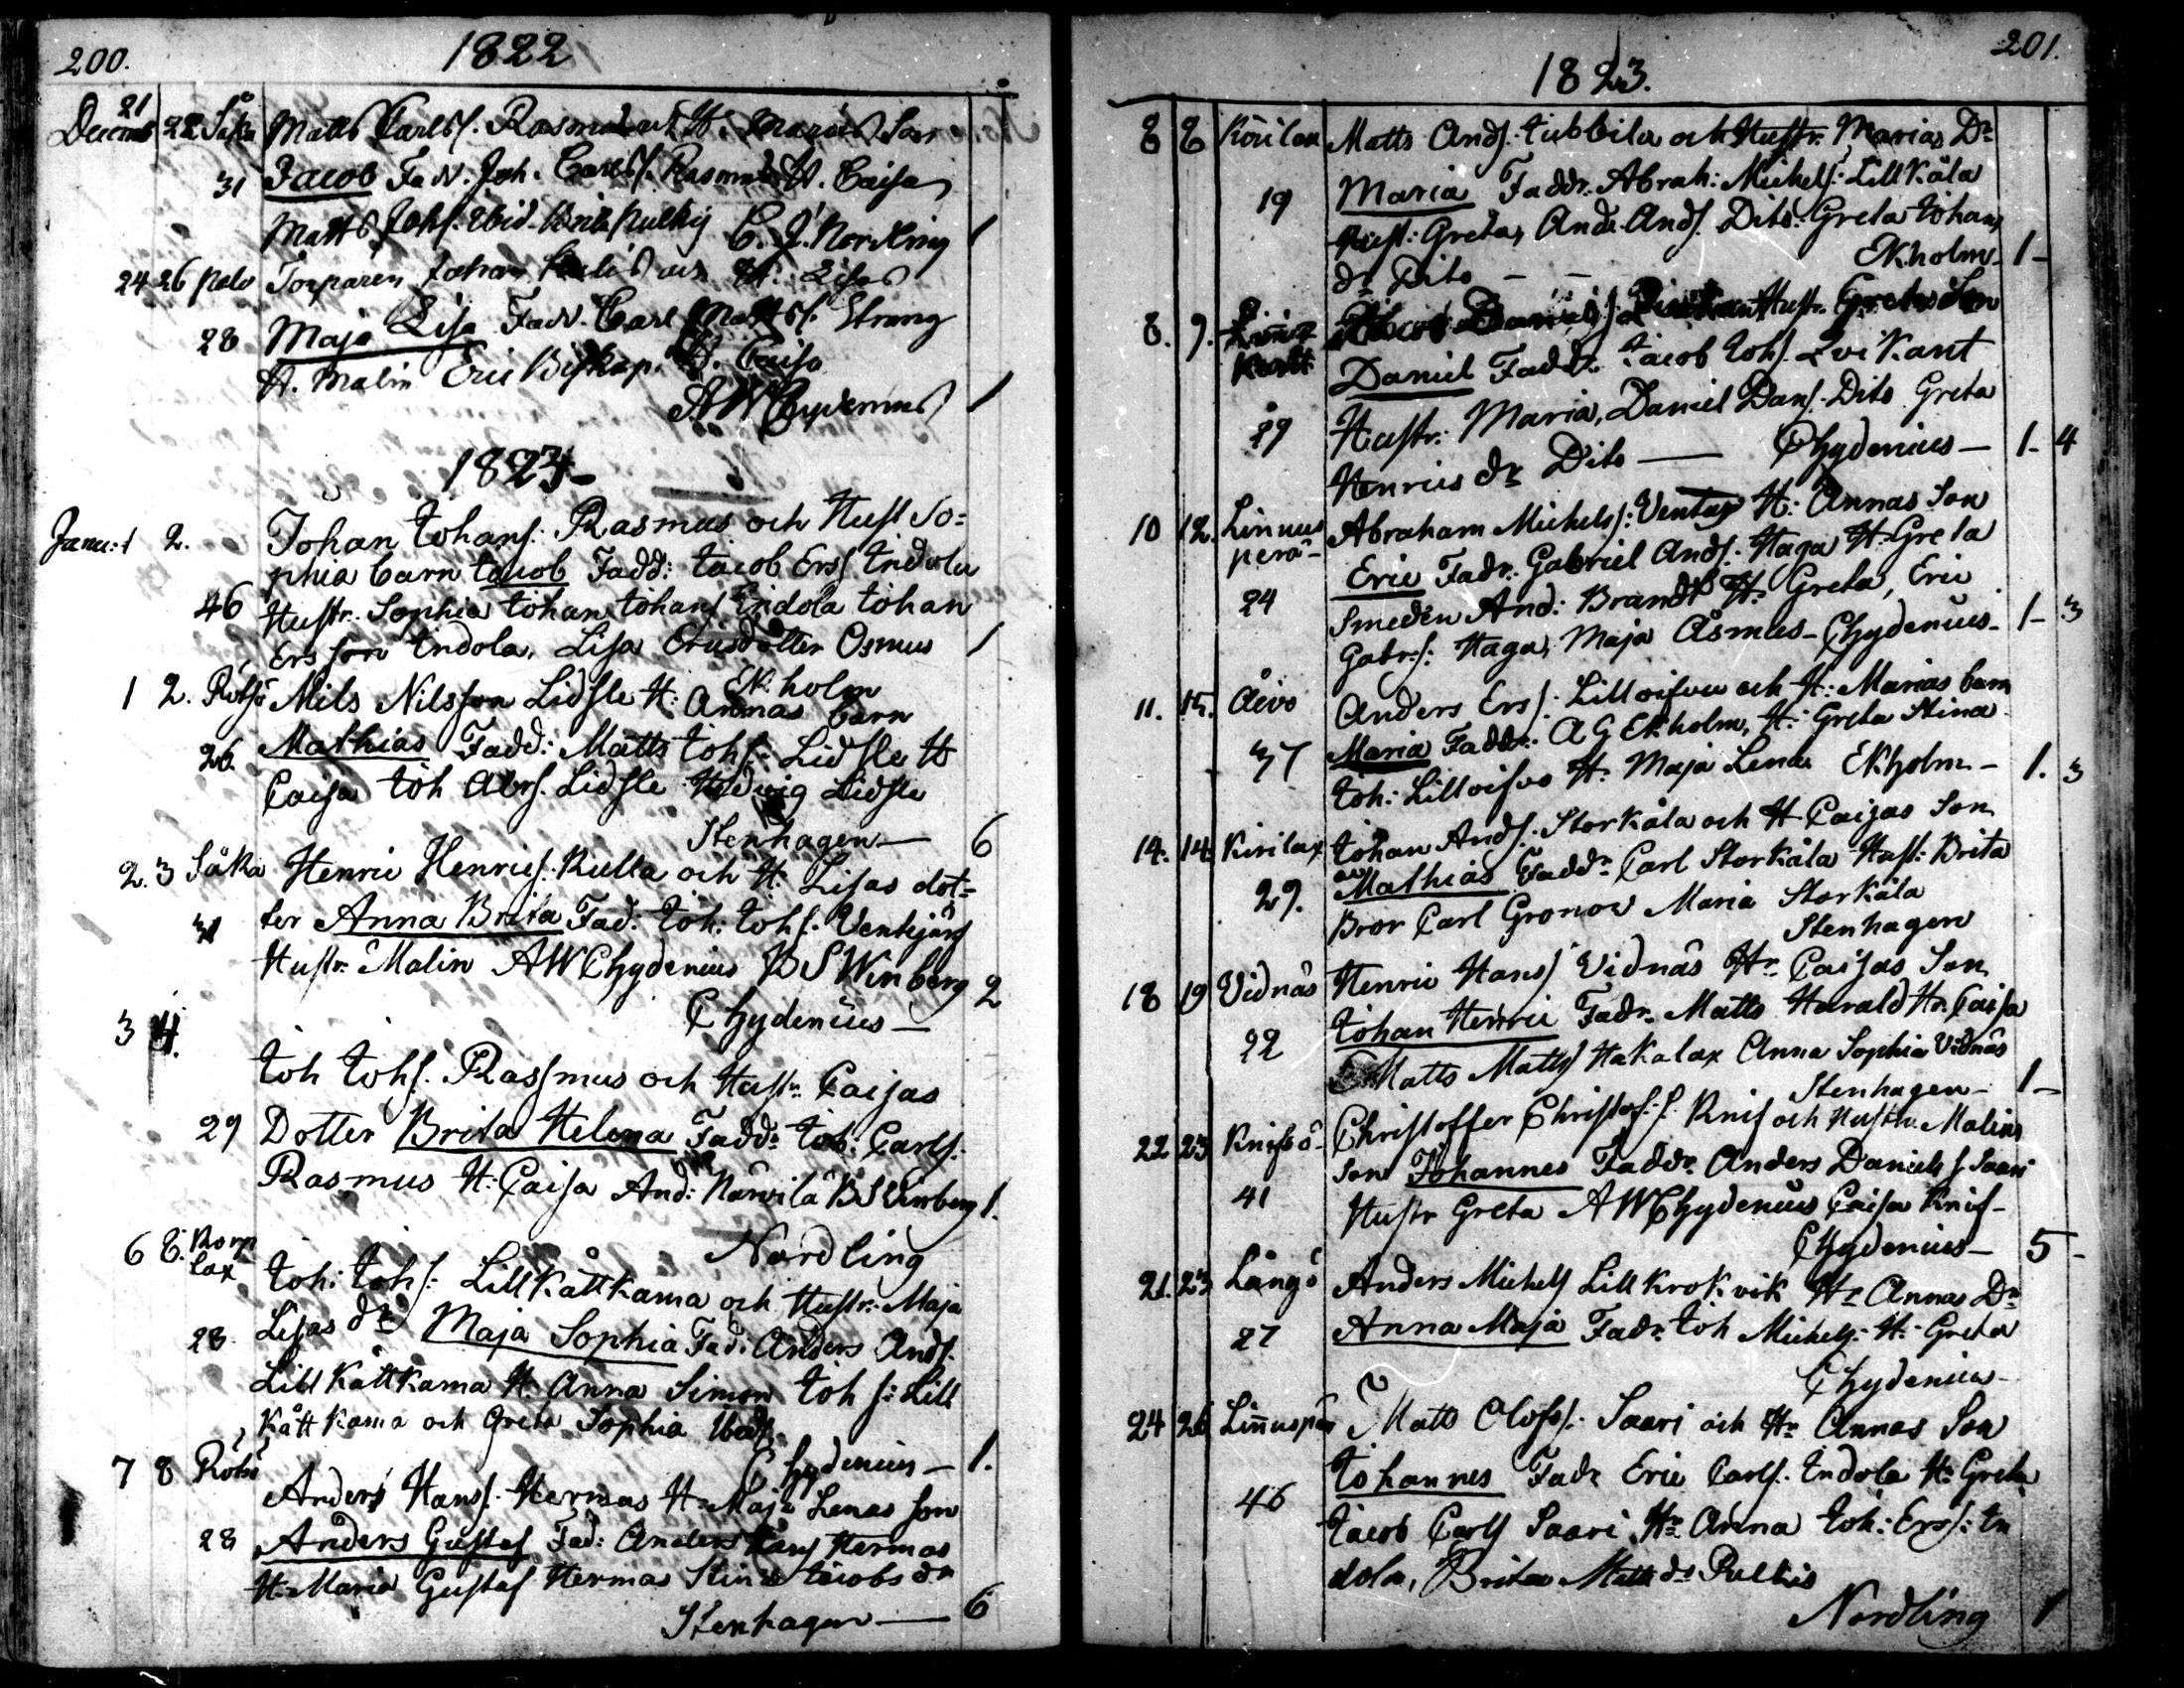 200.
1822
21
Decemb 22 Såka Matts Carlss. Rasmus och H. Marias Son
31 Jacob Fadr. Joh. Carlss. Rasmus H. Caisa
Matts Johs. ibid. Brita Pulkis C. J. Nordling 1
24 26 Palo Torparen Johan och H. Lisas
28 Maja Lisa Fadr. Carl Mattss. Strang
H. Malin Eric Biskop. H. Caisa
AWChydenius 1
1823-
Janu: 1 2. Johan Johans. Rasmus och Hust So=
phia barn Jacob Fadd: Jacob Ers. Indola
46 Hustr. Sophia Johan Johans Indola Johan
Ersson Indola, Lisa Ericsdotter Osmus 1
Ekholm
1 2. Rotsö Nils Nilsson Lidsle H: Annas barn
26. Mathias Fadd: Matts Johs: Lidsle H
Caisa Joh Abrs. Lidsle Hedvig Lidsle
Stenhagen— 6
2. 3 Såka Henric Henrics. Kulla och H. Lisas dot=
31 ter Anna Brita Fad. Joh. Johs. Ventjärf
Hustr. Malin AWChydenius BSWinberg 2
CHydenius—
3 4. Joh Johs. Rassmus och Hustr. Caisas
29 Dotter Brita Helena Fadd: Joh. Carls.
Rasmus H. Caisa And: Närvilä BSWinberg 1.
Nordling
6 8. Korp
lax Joh: Johs: Lillkåttkama och Hustr. Maja
23. Lisas dr Maja Sophia Fad. Anders Ands.
Lillkåttkama H. Anna Simon Joh s: Lill
kåttkama och Greta Sophia Ibid.
CHydenius— 1.
7 8 Rötsö Anders Hans. Hermas H. Maja Lenas son
28 Anders Gustaf Fad: Anders Hans Hermas
H. Maria Gustaf Hermas Stina Jacobs dr
Stenhagen— 6
201.
1823.
8 8 Körilax Matts Ands. Jubbila och Hustr. Marias Dr
19 Maria Faddr. Abrah: Michels: Lillkåla
Hust: Greta, Ands. Dito. Greta Johans
dr Dito — — Ekholm 1-
8. 9. Linnus
Hustr. Gretas Son
Daniel Faddr. Jacob Johs. Lvikant
29 Hustr: Maria, Daniel Dans. Dito Greta
Henrics dr Dito — CHydenius— 1- 4
10 12. Linnus
perä- Abraham Michelss: Ventus H: Annas Son
Eric Fadr. Gabriel Ands. Haga H. Greta
24 Smeden And: Brandt H. Greta, Eric
Gabr.s: Haga, Maja Åsmus- CHydenius- 1- 3
11. 15. Åivo Anders Erss: Lilloisvo och H: Marias barn
37 Maria Faddr: A G Ekholm, H: Greta Stina
Joh: Lilloisvo H: Maja Lena Ekholm— 1. 3
14. 14. Kirilax Johan Ands. Storkåla och H Caisas Son
29. Mathias Faddr Carl Storkåla Hust: Brita
Bror Carl Gronow Maria Storkåla
Stenhagen
18 19 Vidnäs Henric Hans Vidnäs Hr Caisas Son
22 Johan Henric Fadr. Matts Harald Hr. Caisa
Matts Matts Hakalax Anna Sophia Vidnäs
Stenhagen— 1-
22 23 Knifsö- Christoffer Christof: s. Knif och Hustru Malins
41 Son Johannes Faddr Anders Daniels Saari
Hustr Greta AWCHydenius Caisa Knif-
CHydenius— 5-
21. 23 Långö Anders Michels Lillkrokvik Hr Annas Dr
27 Anna Maja Fadr. Joh Michels: H. Greta
CHydenius-
24 26 Linnusper Matts Olofss. Saari och Hr Annas Son
46 Johannes Fadr Eric Carls. Indola Hr Greta
Jacob Carls Saari Hr Anna Joh: Ers: In
dola, Brita Matts dr Pulkis
Nordling 1